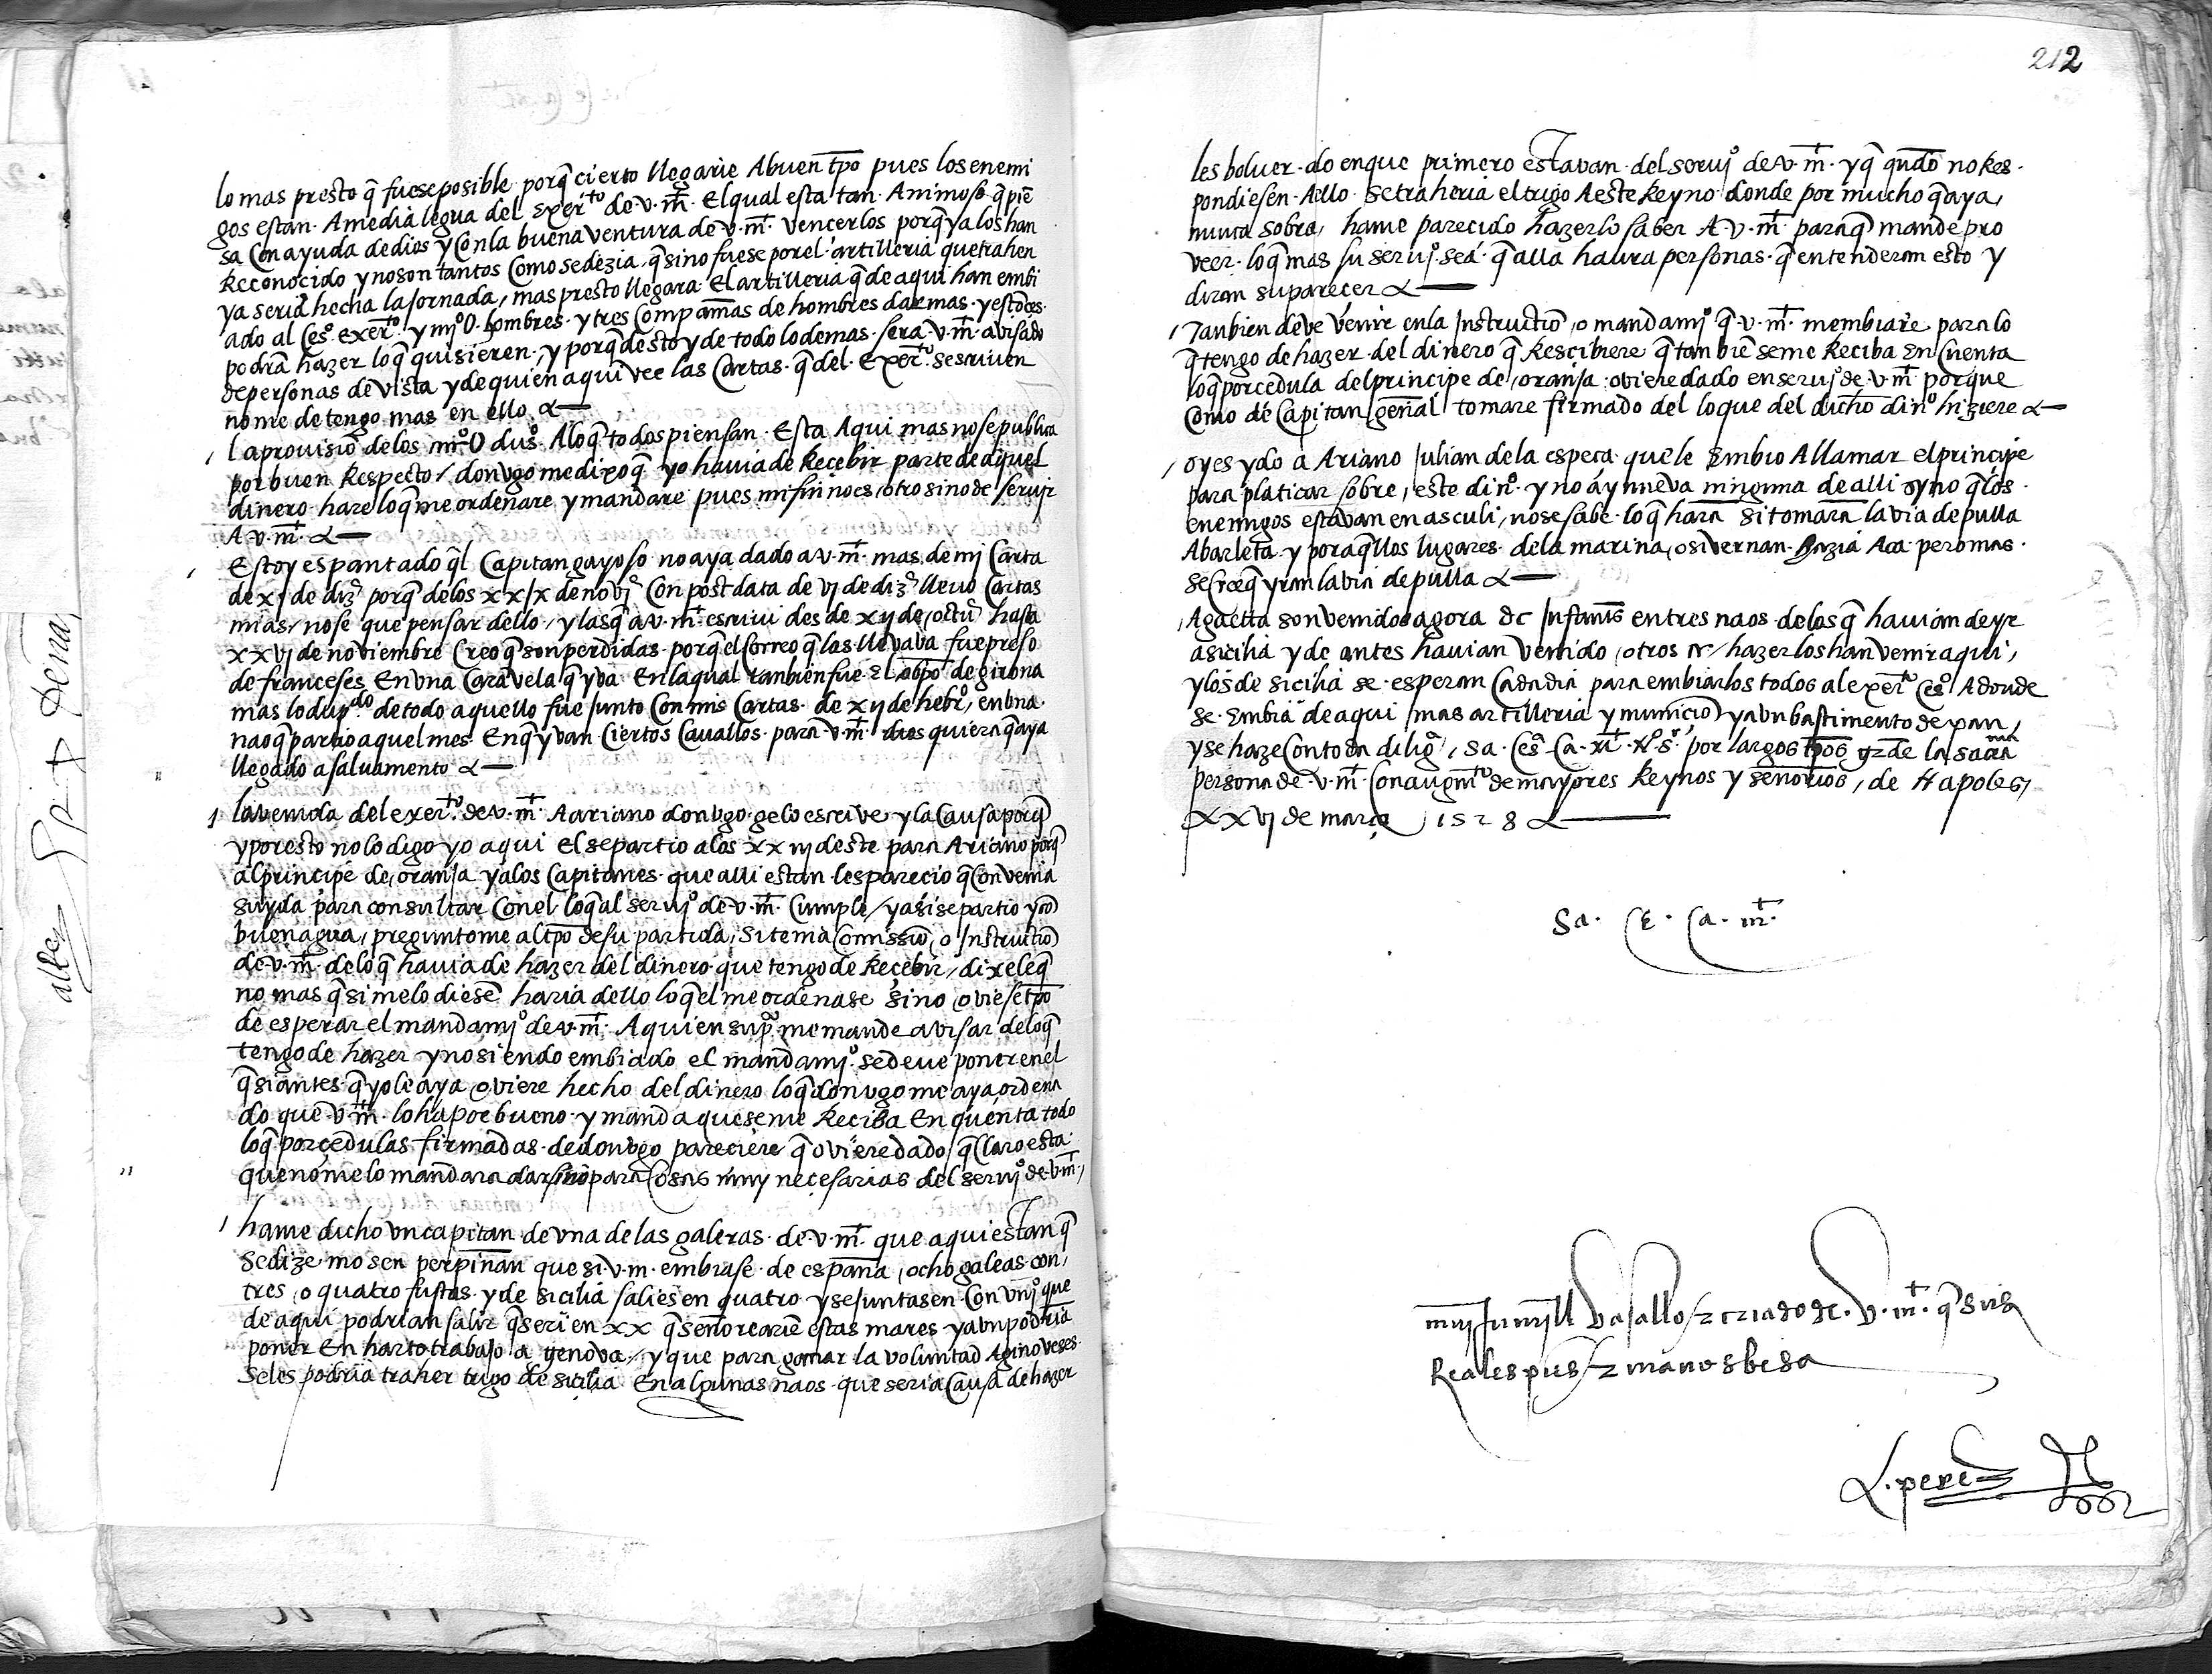 lo mas presto q̃ fuese posible porq̃ cierto llegarie A buen tp̃o pues los enemi
gos estan A media legua del exerto de v. mt. El qual esta tan Animoso q̃ piẽ
sa Con ayuda de dios y Con la buena ventura de v. mt. vencerlos porq̃ ya los han
Reconocido y no son tantos Como se dezia q̃ si no fuese por el artilleria que trahen
ya seria hecha la Jornada, mas presto llegara El artilleria q̃ de aqui han embi
ado al Ceso. exerto. y hombres y tres Compañias de hombres darmas y estõces
podrã hazer lo q̃ quisieren, y porq̃ desto y de todo lo demas sera v. mt. avisado
de personas de vista y de quien aqui vee las Cartas q̃ del Exerto se scriven
no me detengo mas en ello
la provisiõ de los duos. A lo q̃ todos piensan Esta Aqui mas no se publica
por buen Respecto / don vgo me dixo q̃ yo havia de Recebir parte de aquel
dinero hare lo q̃ me ordenare y mandare pues mi fin no es otro sino de servir
A v. mt.
Estoy espantado q̃l Capitan gayoso no aya dado a v. mt. mas de mi Carta
de xj de diz.e porq̃ de los xxix de nove Con post data de vj de diz.e llevo Cartas
mias, no se que pensar dello, y las q̃ a v. mt. escrivi des de xij de octue hasta
xxvj de noviembre Creo q̃ son perdidas porq̃ el Correo q̃ las llevava fue preso
de franceses En vna Caravela q̃ yva En la qual tambien fue El obp̃o de girona
mas lo dupdo. de todo aquello fue Junto Con mis Cartas de xij de hebro, en vna
nao q̃ partio aquel mes En q̃ yvan Ciertos Cavallos para v. mt. dios quiera q̃ aya
llegado a salvamento
la venida del exerto. de v. mt. A ariano don vgo gelo escrive y la Causa porq̃
y por esto no lo digo yo aqui el se partio a los xxiij deste para Ariano porq̃
al principe de oranja y a los Capitanes que alli estan les parecio q̃ Convenia
su yda para consultar Con el lo q̃ al servio de v. mt. Cumple / y asi se partio yẽdo
buen agua, preguntome al tp̃o de su partida, Si tenia Comissiõ o Instructiõ
de v. mt. de lo q̃ havia de hazer del dinero que tengo de Recebir, dixele q̃
no mas q̃ si me lo diesẽ haria dello lo q̃ el me ordenase si no oviese tp̃o
de esperar el mandamjo de v. mt. A quien supco me mande avisar de lo q̃
tengo de hazer y no siendo embiado el mandamjo. se deve poner en el
q̃ si antes q̃ yo le aya oviere hecho del dinero lo q̃ don vgo me aya ordena
do que v. mt. lo ha por bueno y manda que se me Reciba En quenta todo
lo q̃ por cedulas firmadas de don vgo pareciere q̃ oviere dado / q̃ Claro esta
que no me lo mandara dar sino para Cosas muy necesarias del servjo de v. mt.,
hame dicho vn capitan de vna de las galeras de v. mt. que aqui estan q̃
se dize mosen perpiñan que si v. m. embiase de españa, ocho galeas con
tres, o quatro fustas y de sicilia saliesen quatro y se Juntasen Con que
de aqui podrian salir q̃ seriẽn xx q̃ señorearie estas mares y aun podria
poner En harto trabajo a genova, y que para ganar la voluntad A ginoveses
Se les podria traher trigo de sicilia En algunas naos que seria Causa de hazer
alle
212
les bolver do en que primero Estavan del servjo de v. mt. y q̃ quãdo no Res
pondiesen A ello se traheria el trigo A este Reyno donde por mucho q̃ aya,
nunca sobra, hame parecido hazerlo saber A v. mt. para q̃ mande pro
veer lo q̃ mas su servjo. sea q̃ alla havra personas q̃ entenderan esto y
diran su parecer
Tanbien deve venir en la Instructiõ, o mandamjo q̃ v. mt. me mbiare para lo
q̃ tengo de hazer del dinero q̃ Rescibiere q̃ tanbiẽ se me Reciba En Cuenta
lo q̃ por cedula del principe de oranja oviere dado en servjo de v. mt. porque
Como de Capitan geñal tomare firmado del lo que del dicho dino hiziere
oy es ydo a Ariano Julian de la espera que le Embio A llamar el principe
para platicar sobre este dino. y no ay nueva ninguna de alli syno q̃ los
enemigos estavan en asculi, no se sabe lo q̃ harã Si tomarã la via de pulla
A barleta y por aq̃llos lugares de la marina, o si vernan hazia Aca pero mas
se Cree q̃ yran la via de pulla
A gaetta son venidos agora dc Infantes en tres naos de los q̃ havian de yr
a sicilia y de antes havian venido otros hazer los han venir aqui,
y los de sicilia se esperan Cada dia para embiarlos todos al exerto Ceso A donde
se Embia de aqui mas artilleria y municiõ y aun bastimento de pan,
y se haze Con toda dilig.a, Sa. Cesa. Ca. mt. nro. sr. por largos tp̃os gde la sacra
persona de v. mt. Con augmto de mayores Reynos y señorios, de Napoles,
xxvj de março 1528
Sa. Ce. Ca. mt.
muy humjll vasallo z criado de v. mt. q̃ sus
Reales pies z manos besa
L. perez